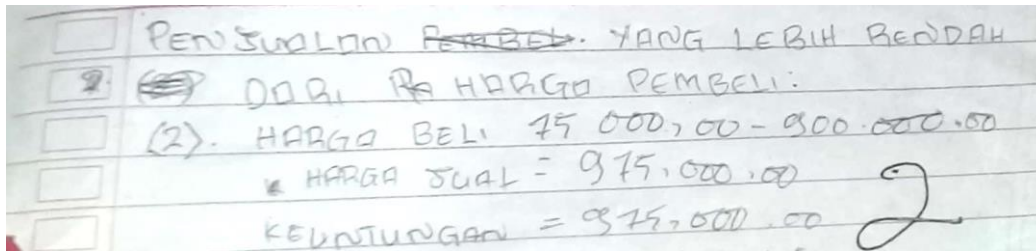 PENJUALAN YANG LEBIH RENDAH
2. DARI HARGA PEMBELI:
(2). HARGA BELI 75 000,00 - 900.000.00
HARGA JUAL = 975,000.00
KEUNTUNGAN = 975,000.00
2